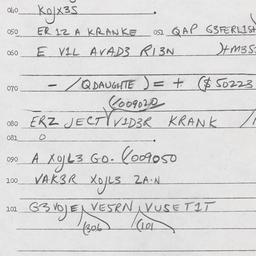 040 KOJX3S
050 ER 12 A KRANKE 051 QAP G3FERLISH
060 E V1L AVAD3 R13N )+M3S
070 - / QDAUGHTE ) = + ($ 50223
(009020
080 ERZ JECT V1D3R KRANK /
081 O
090 A XOJL3 GO. (009050
100 VAK3R XOJLS 2A.N
101 G3VOJE, VESRN, VUSET1T
(306 (101